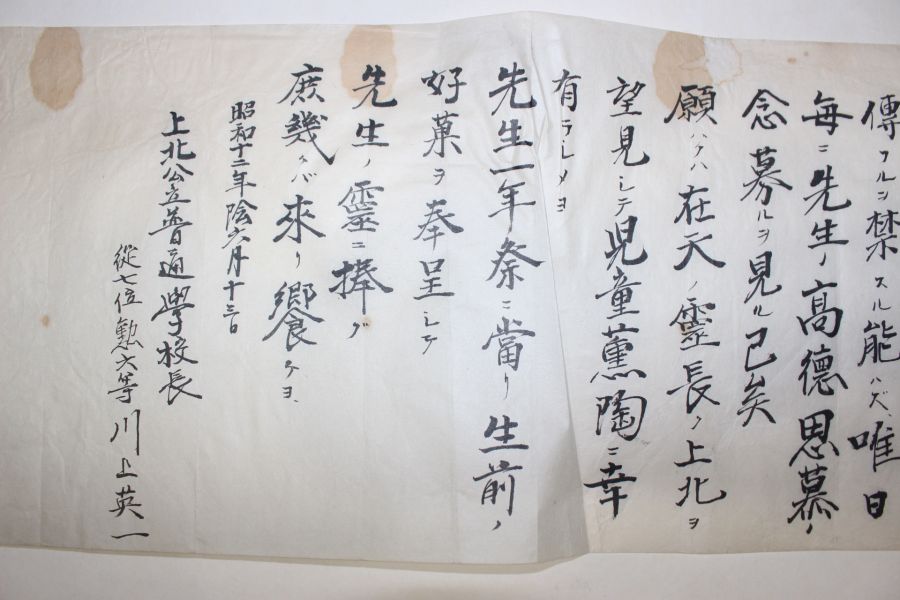 傳フルヿ禁スル能ハズ、唯日
每ニ先生ノ高德思慕ノ
念募ルヲ見ル已矣
願ハクハ在天ノ靈長ク上北ヲ
望見シテ児童薰陶ニ幸
有ラシメヨ
先生一年祭ニ當リ生前ノ
好菓ヲ奉呈シテ
先生ノ靈ニ捧グ
庶幾クバ來リ饗ケヨ、
昭和十二年陰六月十三日
上北公立普通學校長
從七位勲六等 川上英一